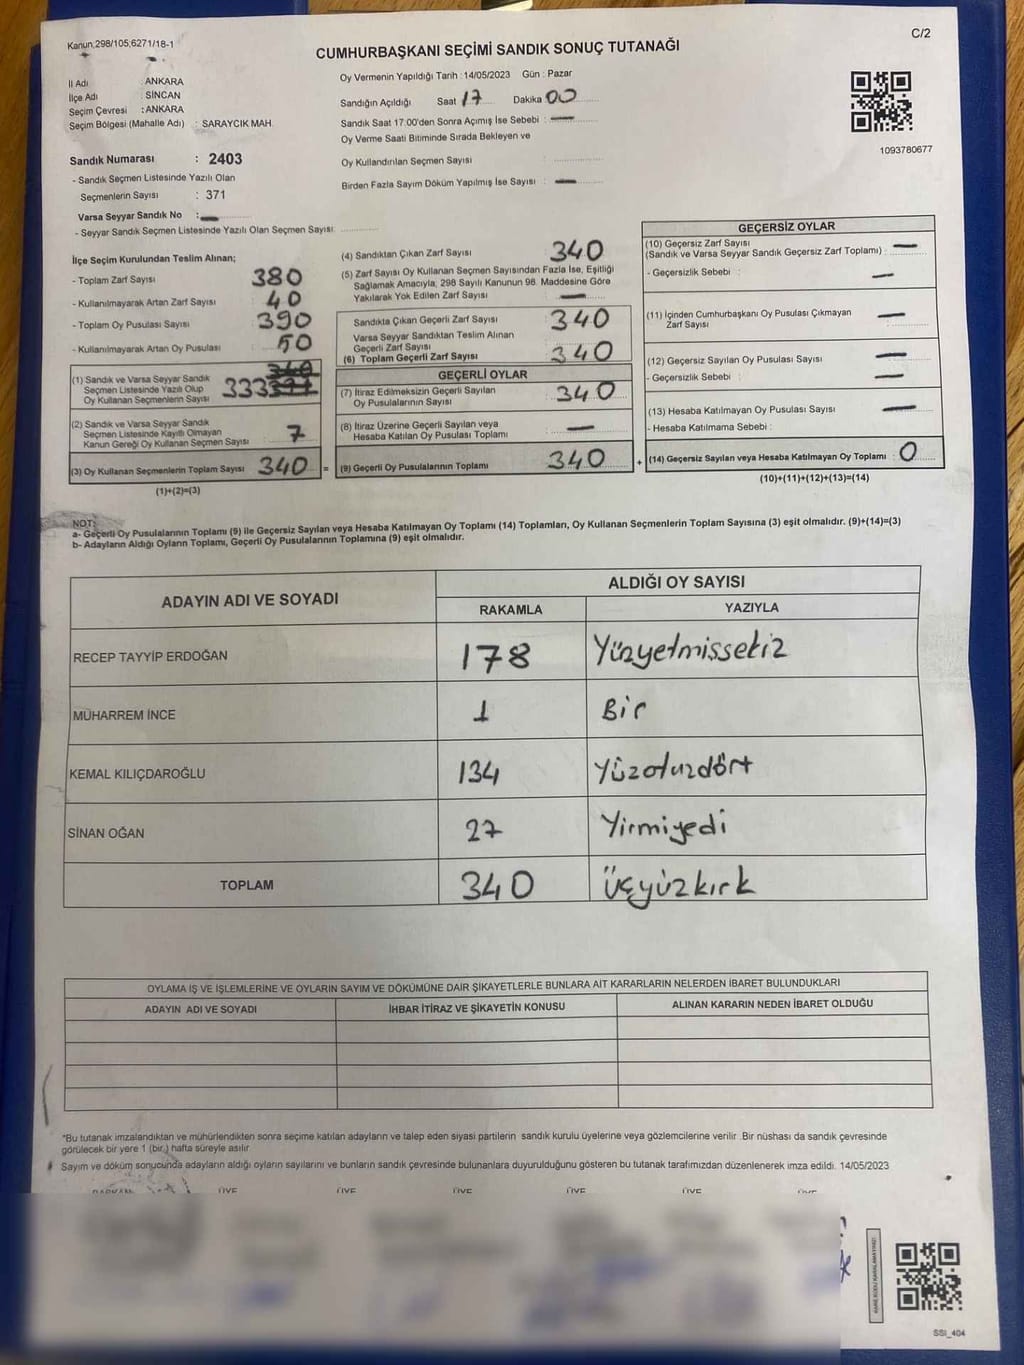 Kanun,298/105;6271/18-1
C/2
CUMHURBAŞKANI SEÇİMİ SANDIK SONUÇ TUTANAĞI
İl Adı : ANKARA
İlçe Adı : SİNCAN
Seçim Çevresi : ANKARA
Seçim Bölgesi (Mahalle Adı) : SARAYCIK MAH.
Oy Vermenin Yapıldığı Tarih : 14/05/2023 Gün : Pazar
Sandığın Açıldığı Saat 17 Dakika 00
Sandık Saat 17:00'den Sonra Açımış İse Sebebi : —
Oy Verme Saati Bitiminde Sırada Bekleyen ve
Oy Kullandırılan Seçmen Sayısı :
Birden Fazla Sayım Döküm Yapılmış İse Sayısı : —
1093780677
Sandık Numarası : 2403
- Sandık Seçmen Listesinde Yazılı Olan
Seçmenlerin Sayısı : 371
Varsa Seyyar Sandık No : —
- Seyyar Sandık Seçmen Listesinde Yazılı Olan Seçmen Sayısı:
İlçe Seçim Kurulundan Teslim Alınan;
- Toplam Zarf Sayısı 380
- Kullanılmayarak Artan Zarf Sayısı 40
- Toplam Oy Pusulası Sayısı 390
- Kullanılmayarak Artan Oy Pusulası 50
(1) Sandık ve Varsa Seyyar Sandık
Seçmen Listesinde Yazılı Olup
Oy Kullanan Seçmenlerin Sayısı 333
(2) Sandık ve Varsa Seyyar Sandık
Seçmen Listesinde Kayıtlı Olmayan
Kanun Gereği Oy Kullanan Seçmen Sayısı 7
(3) Oy Kullanan Seçmenlerin Toplam Sayısı 340 =
(1)+(2)=(3)
(4) Sandıktan Çıkan Zarf Sayısı 340
(5) Zarf Sayısı Oy Kullanan Seçmen Sayısından Fazla İse, Eşitliği
Sağlamak Amacıyla; 298 Sayılı Kanunun 98. Maddesine Göre
Yakılarak Yok Edilen Zarf Sayısı —
Sandıkta Çıkan Geçerli Zarf Sayısı 340
Varsa Seyyar Sandıktan Teslim Alınan
Geçerli Zarf Sayısı
(6) Toplam Geçerli Zarf Sayısı 340
GEÇERLİ OYLAR
(7) İtiraz Edilmeksizin Geçerli Sayılan
Oy Pusulalarının Sayısı 340
(8) İtiraz Üzerine Geçerli Sayılan veya
Hesaba Katılan Oy Pusulası Toplamı —
(9) Geçerli Oy Pusulalarının Toplamı 340 +
GEÇERSİZ OYLAR
(10) Geçersiz Zarf Sayısı
(Sandık ve Varsa Seyyar Sandık Geçersiz Zarf Toplamı) : —
- Geçersizlik Sebebi : —
(11) İçinden Cumhurbaşkanı Oy Pusulası Çıkmayan
Zarf Sayısı : —
(12) Geçersiz Sayılan Oy Pusulası Sayısı : —
- Geçersizlik Sebebi : —
(13) Hesaba Katılmayan Oy Pusulası Sayısı : —
- Hesaba Katılmama Sebebi :
(14) Geçersiz Sayılan veya Hesaba Katılmayan Oy Toplamı : 0
(10)+(11)+(12)+(13)=(14)
NOT:
a- Geçerli Oy Pusulalarının Toplamı (9) ile Geçersiz Sayılan veya Hesaba Katılmayan Oy Toplamı (14) Toplamları, Oy Kullanan Seçmenlerin Toplam Sayısına (3) eşit olmalıdır. (9)+(14)=(3)
b- Adayların Aldığı Oyların Toplamı, Geçerli Oy Pusulalarının Toplamına (9) eşit olmalıdır.
ADAYIN ADI VE SOYADI
ALDIĞI OY SAYISI
RAKAMLA YAZIYLA
RECEP TAYYİP ERDOĞAN 178 Yüzyetmissekiz
MUHARREM İNCE 1 Bir
KEMAL KILIÇDAROĞLU 134 Yüzotuzdört
SİNAN OĞAN 27 Yirmiyedi
TOPLAM 340 üçyüzkırk
OYLAMA İŞ VE İŞLEMLERİNE VE OYLARIN SAYIM VE DÖKÜMÜNE DAİR ŞİKAYETLERLE BUNLARA AİT KARARLARIN NELERDEN İBARET BULUNDUKLARI
ADAYIN ADI VE SOYADI İHBAR İTİRAZ VE ŞİKAYETİN KONUSU ALINAN KARARIN NEDEN İBARET OLDUĞU
*Bu tutanak imzalandıktan ve mühürlendikten sonra seçime katılan adayların ve talep eden siyasi partilerin sandık kurulu üyelerine veya gözlemcilerine verilir. Bir nüshası da sandık çevresinde
görülecek bir yere 1 (bir.) hafta süreyle asılır.
Sayım ve döküm sonucunda adayların aldığı oyların sayılarını ve bunların sandık çevresinde bulunanlara duyurulduğunu gösteren bu tutanak tarafımızdan düzenlenerek imza edildi. 14/05/2023
BAŞKAN ÜYE ÜYE ÜYE ÜYE ÜYE ÜYE
SSI_404